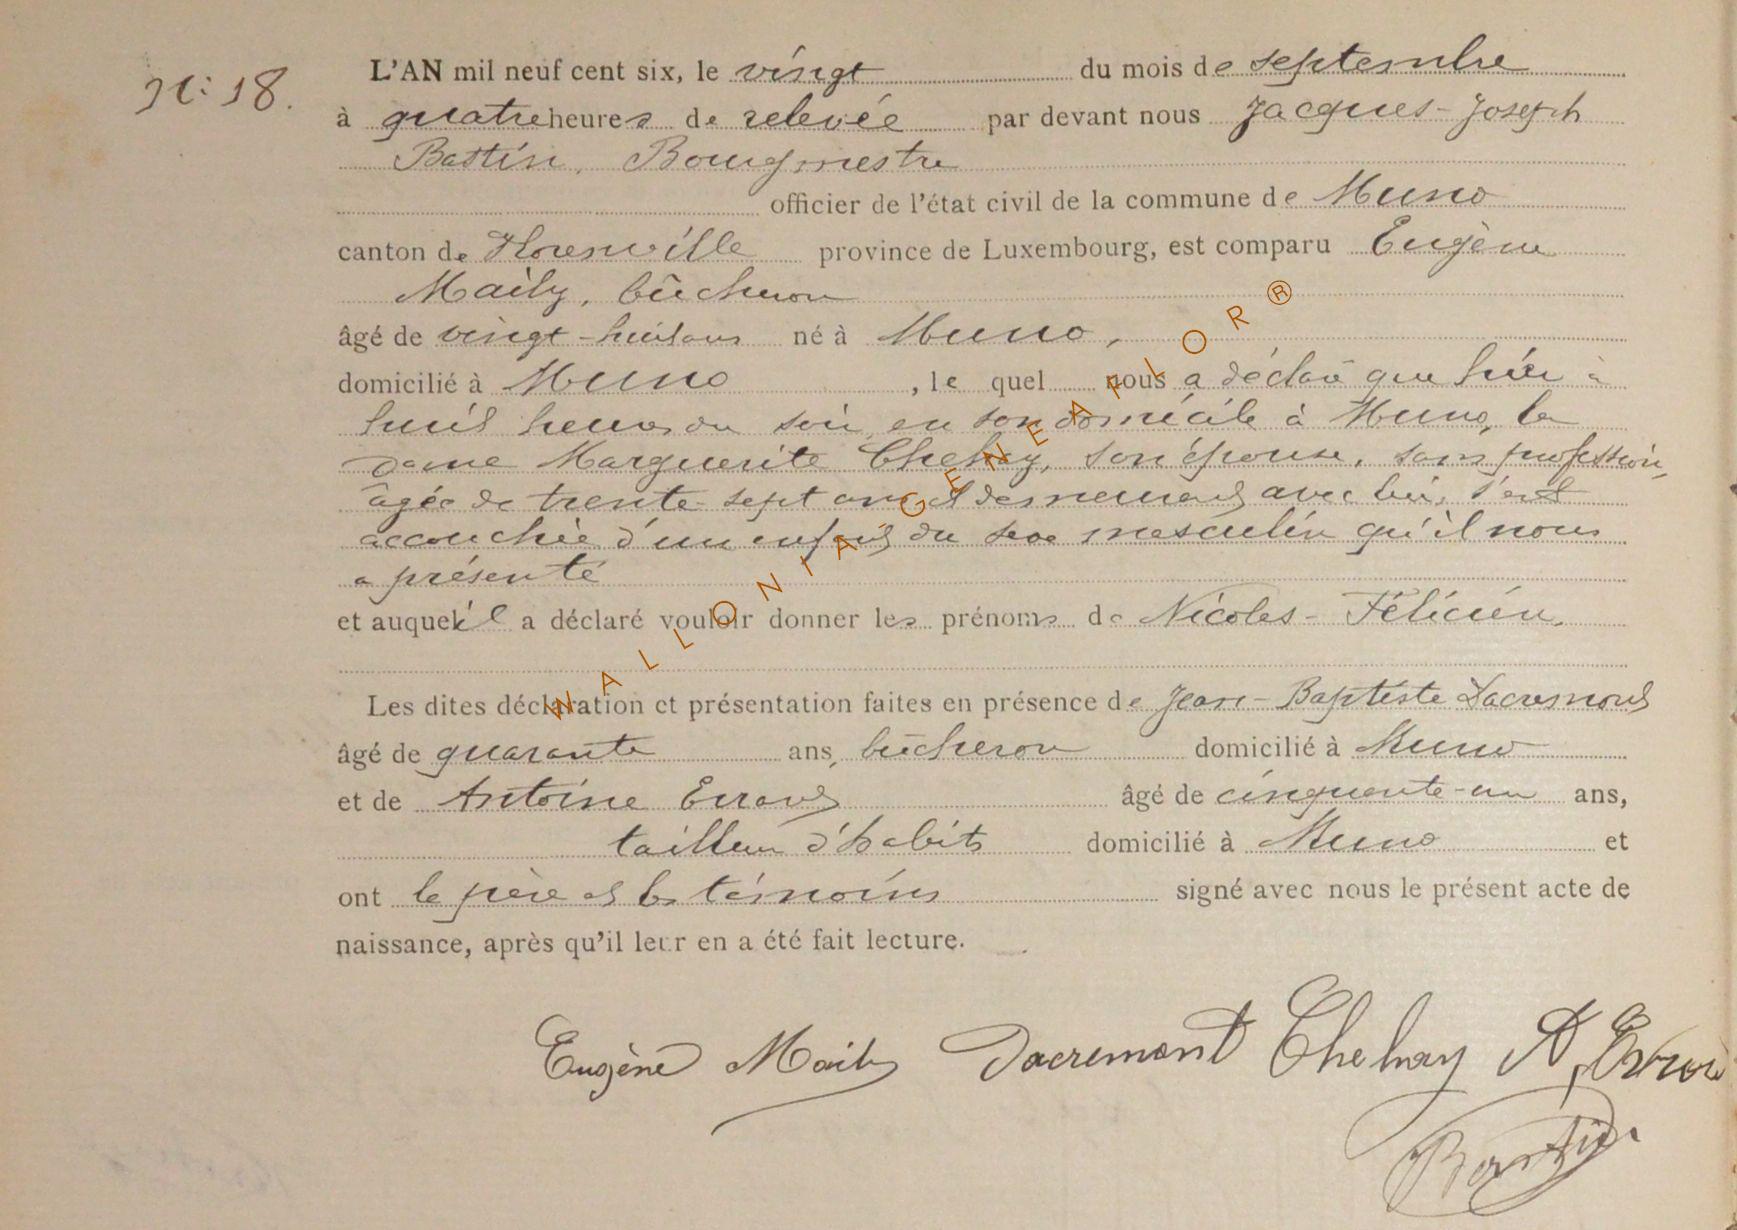 N° 18.
L'AN mil neuf cent six, le vingt du mois de septembre
à quatre heures de relevée par devant nous Jacques-Joseph
Bastin, Bourgmestre
officier de l'état civil de la commune de Muno
canton de Florenville province de Luxembourg, est comparu Eugène
Maily, bûcheron
âgé de vingt-huit ans né à Muno,
domicilié à Muno, le quel nous a déclaré que hier à
huit heures du soir, en son domicile à Muno, la
dame Marguerite Chehay, son épouse, sans profession,
âgée de trente sept ans et demeurant avec lui, s'est
accouchée d'un enfant du sexe masculin qu'il nous
a présenté
et auquel il a déclaré vouloir donner les prénoms de Nicolas-Félicien.
Les dites déclaration et présentation faites en présence de Jean-Baptiste Dacremont
âgé de quarante ans, bûcheron domicilié à Muno
et de Antoine Errard âgé de cinquante-un ans,
tailleur d'habits domicilié à Muno et
ont le père et les témoins signé avec nous le présent acte de
naissance, après qu'il leur en a été fait lecture.
Eugène Maily Dacremont Chehay A,
Bastin
WALLONIA GENEAFLOR®